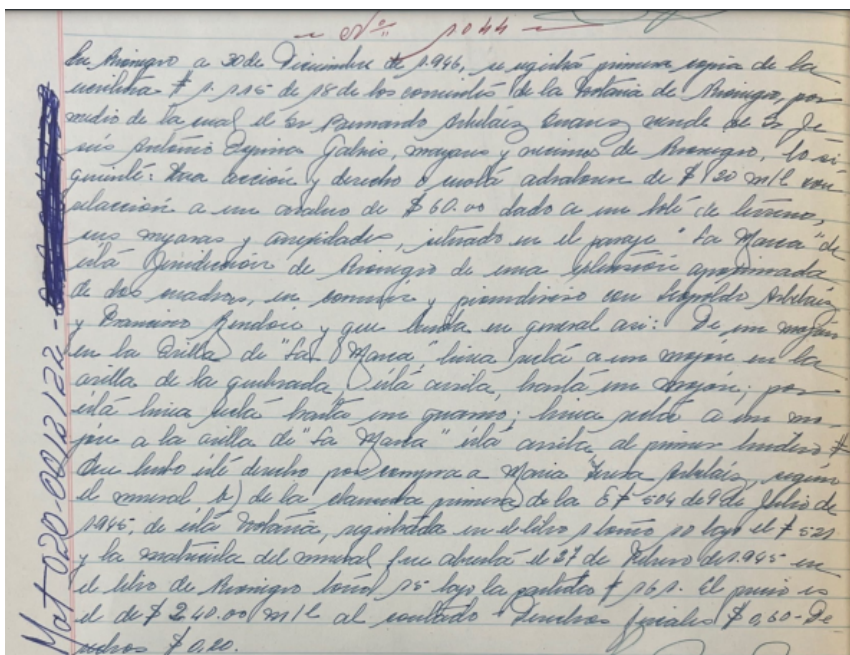 Nº 1044
En Rionegro a 30 de Diciembre de 1.946, se registró primera copia de la
escritura # 1.115 de 18 de los corrientes de la Notaria de Rionegro, por
medio de la cual el Sr Bernardo Arbeláez vende al Sr Je
sús Antonio Espinosa Galvis, mayores y vecinos de Rionegro, lo si
guiente: Una acción y derecho o cuota adralorem de $ 120 m/l con
relacción a un avaluo de $ 60.00 dado a un lote de terreno,
sus mejoras y anexidades, situado en el paraje "La Mosca" de
ésta Jurisdicción de Rionegro de una extensión aproximada
de dos cuadras, en común y proindiviso con Leopoldo Arbeláez
y Francisco Rendón y que linda en general asi: De un mojón
en la orilla de "La Mosca" linea recta a un mojón en la
orilla de la quebrada, ésta arriba, hasta un mojón; por
ésta linea recta hasta un guamo; linea recta a un mo
jón a la orilla de "La Mosca" ésta arriba, al primer lindero #
Que hubo este derecho por compra a Maria Teresa Arbeláez, según
el numeral b) de la clausula primera de la Eª # 504 de 9 de Julio de
1.945, de ésta Notaria, registrada en el libro 1 tomo 10 bajo el # 521
y la matricula del numeral fue abierta el 27 de Febrero de 1.945 en
el libro de Rionegro tomo 15 bajo la partida # 161. El precio es
el de $ 240.00 m/l al contado - Derechos fiscales $ 0,60 - De
rechos $ 0,20.
Mat 020-0012122 -